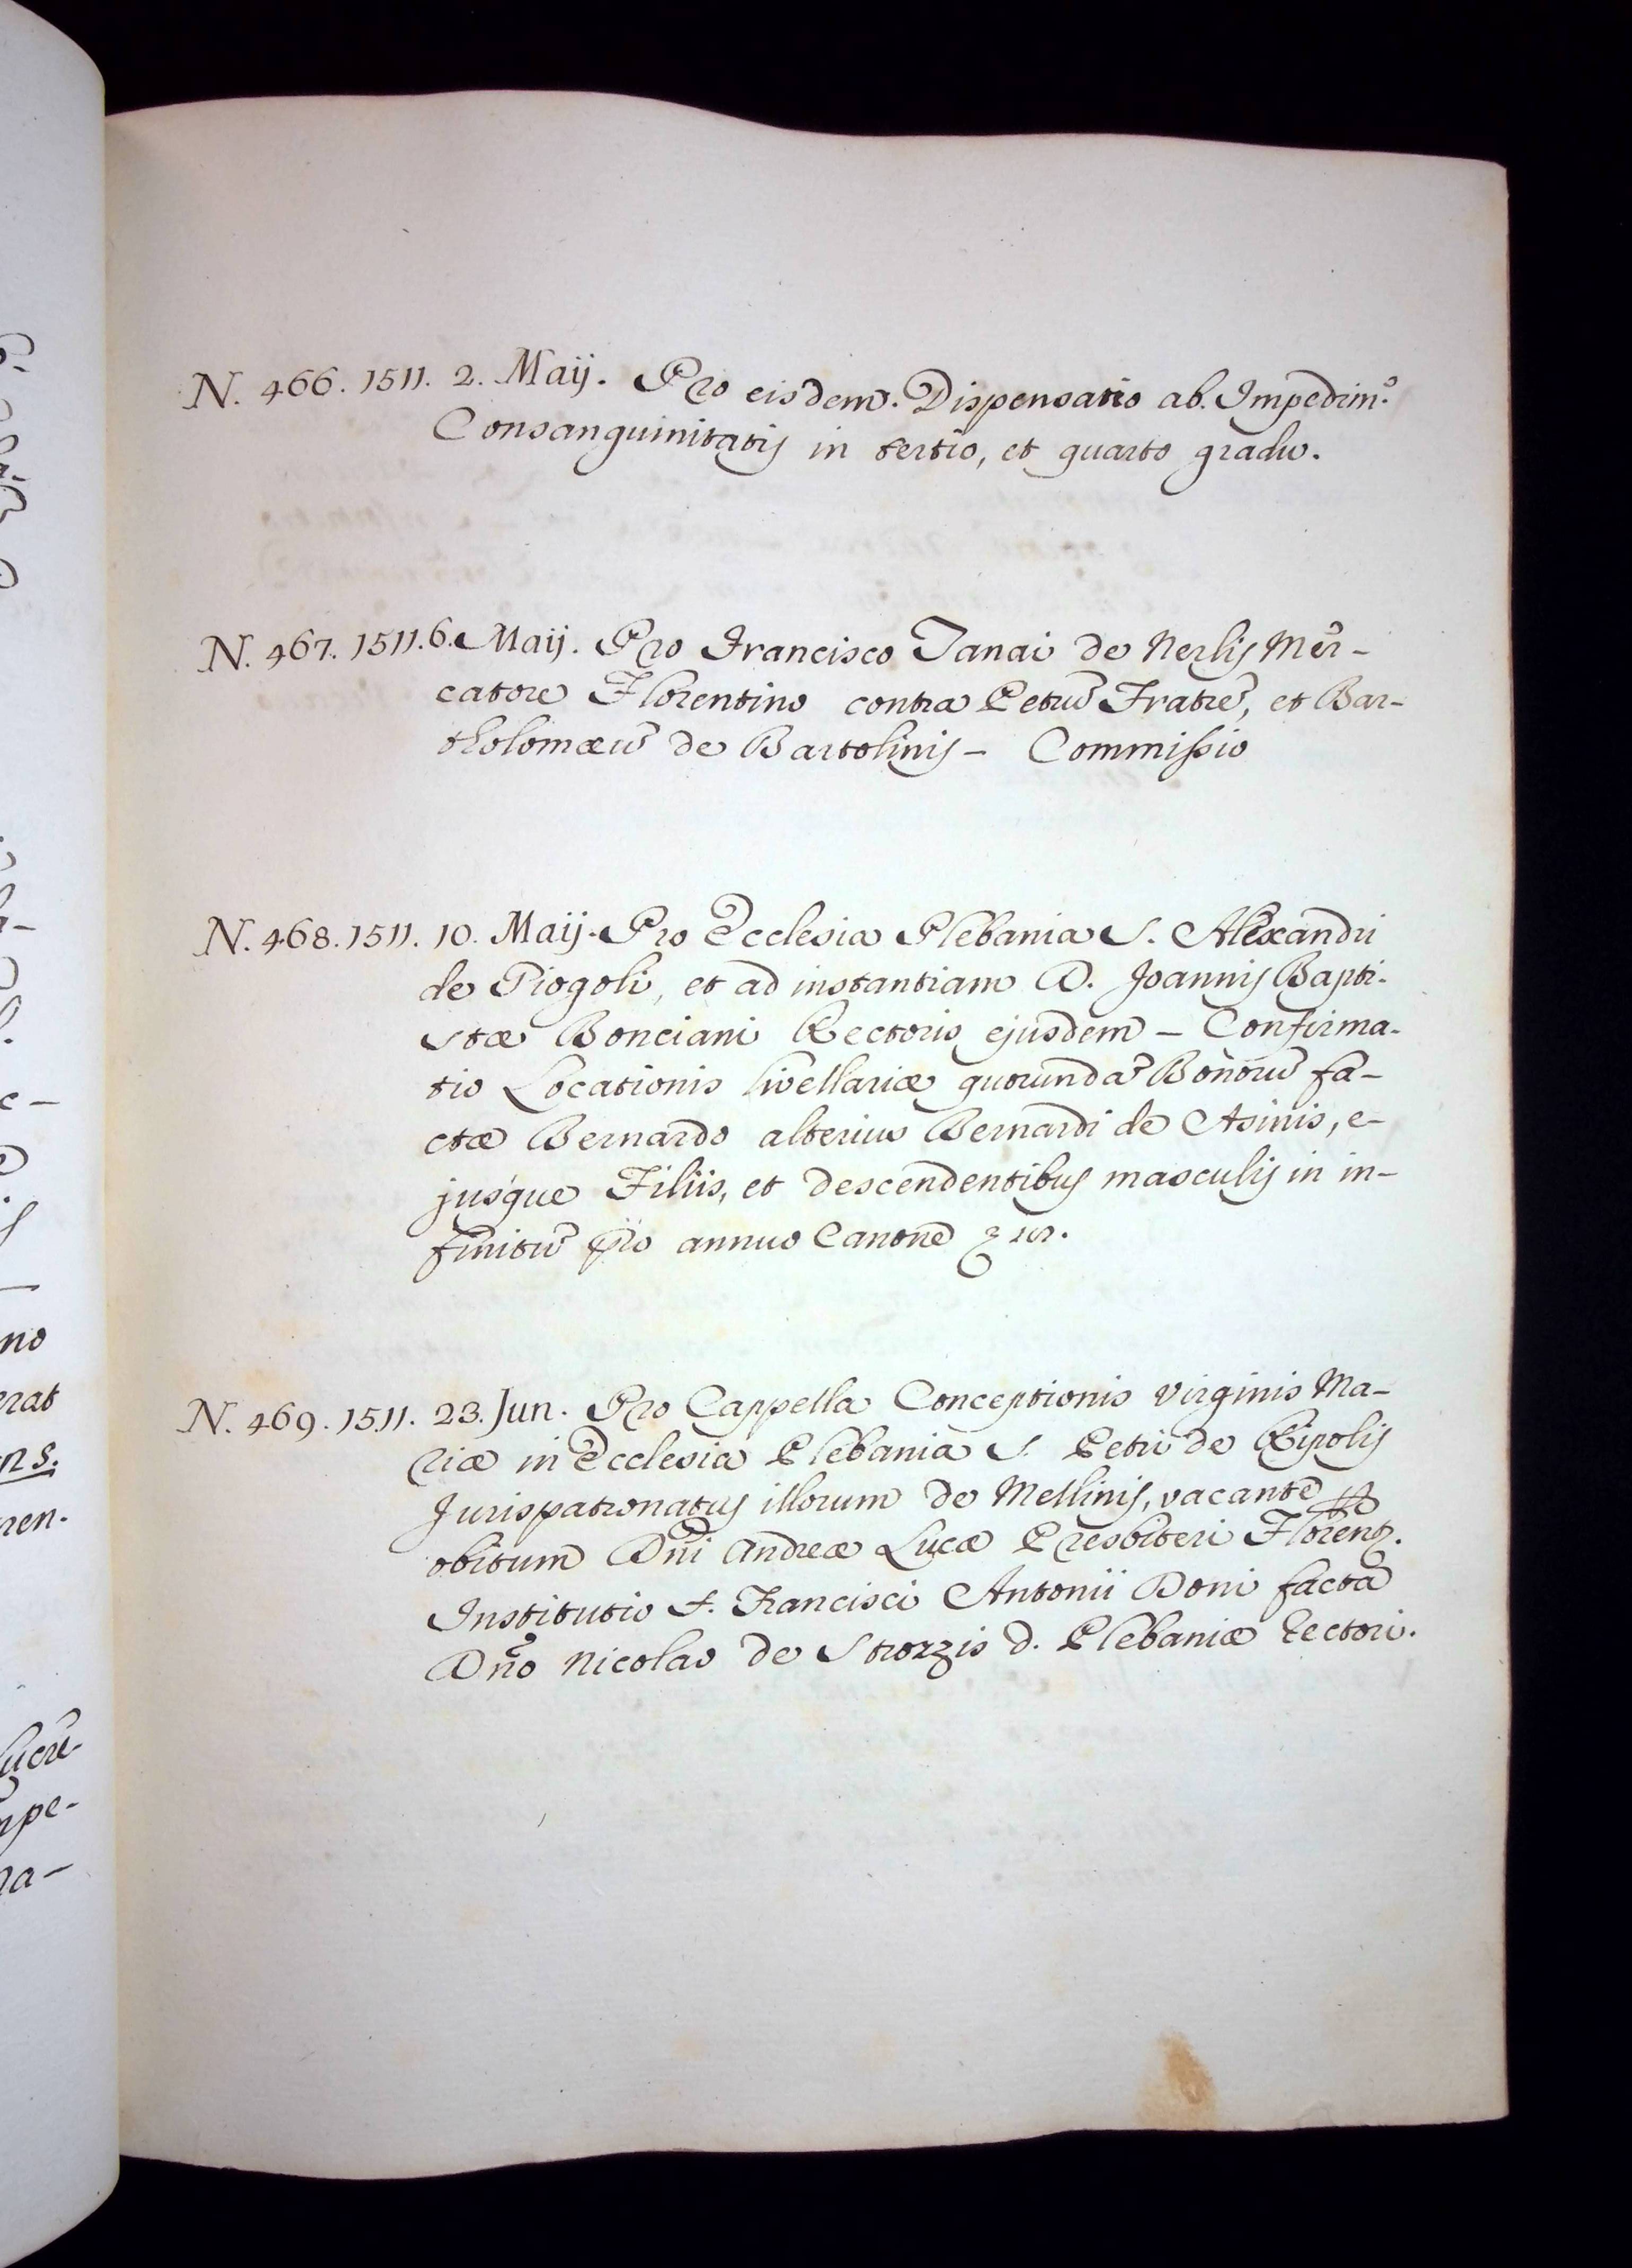 N. 466. 1511. 2. Maij. Pro eisdem. Dispensatio ab. Impedim.º
Consanguinitatis in tertio, et quarto gradu.
N. 467. 1511. 6. Maij. Pro Francisco Tanai de Nerlis Mer-
catore Florentino contra Petrũ Fratrẽ, et Bar-
tholomæũ de Bartolinis - Commissio
N. 468. 1511. 10. Maij. Pro Ecclesia Plebania S. Alexandri
de Giogoli, et ad instantiam D. Joannis Bapti-
stæ Bonciani Rectoris ejusdem - Confirma-
tio Locationis livellariæ quorundã Bonorũ fa-
ctæ Bernardo alterius Bernardi de Asinis, e-
jusque Filiis, et descendentibus masculis in in-
finitũ pro annuo Canonẽ
N. 469. 1511. 23. Jun. Pro Cappella Conceptionis Virginis Ma-
riæ in Ecclesia Plebania S. Petri de Ripolis
Jurispatronatus illorum de Mellinis, vacantẽ
obitum Dñi Andreæ Lucæ Presbiteri Florent.
Institutio S. Francisci Antonii Doni facta
Dño Nicolao de Strozzis d. Plebaniæ Rectori.
no
rat
ns.
ren.